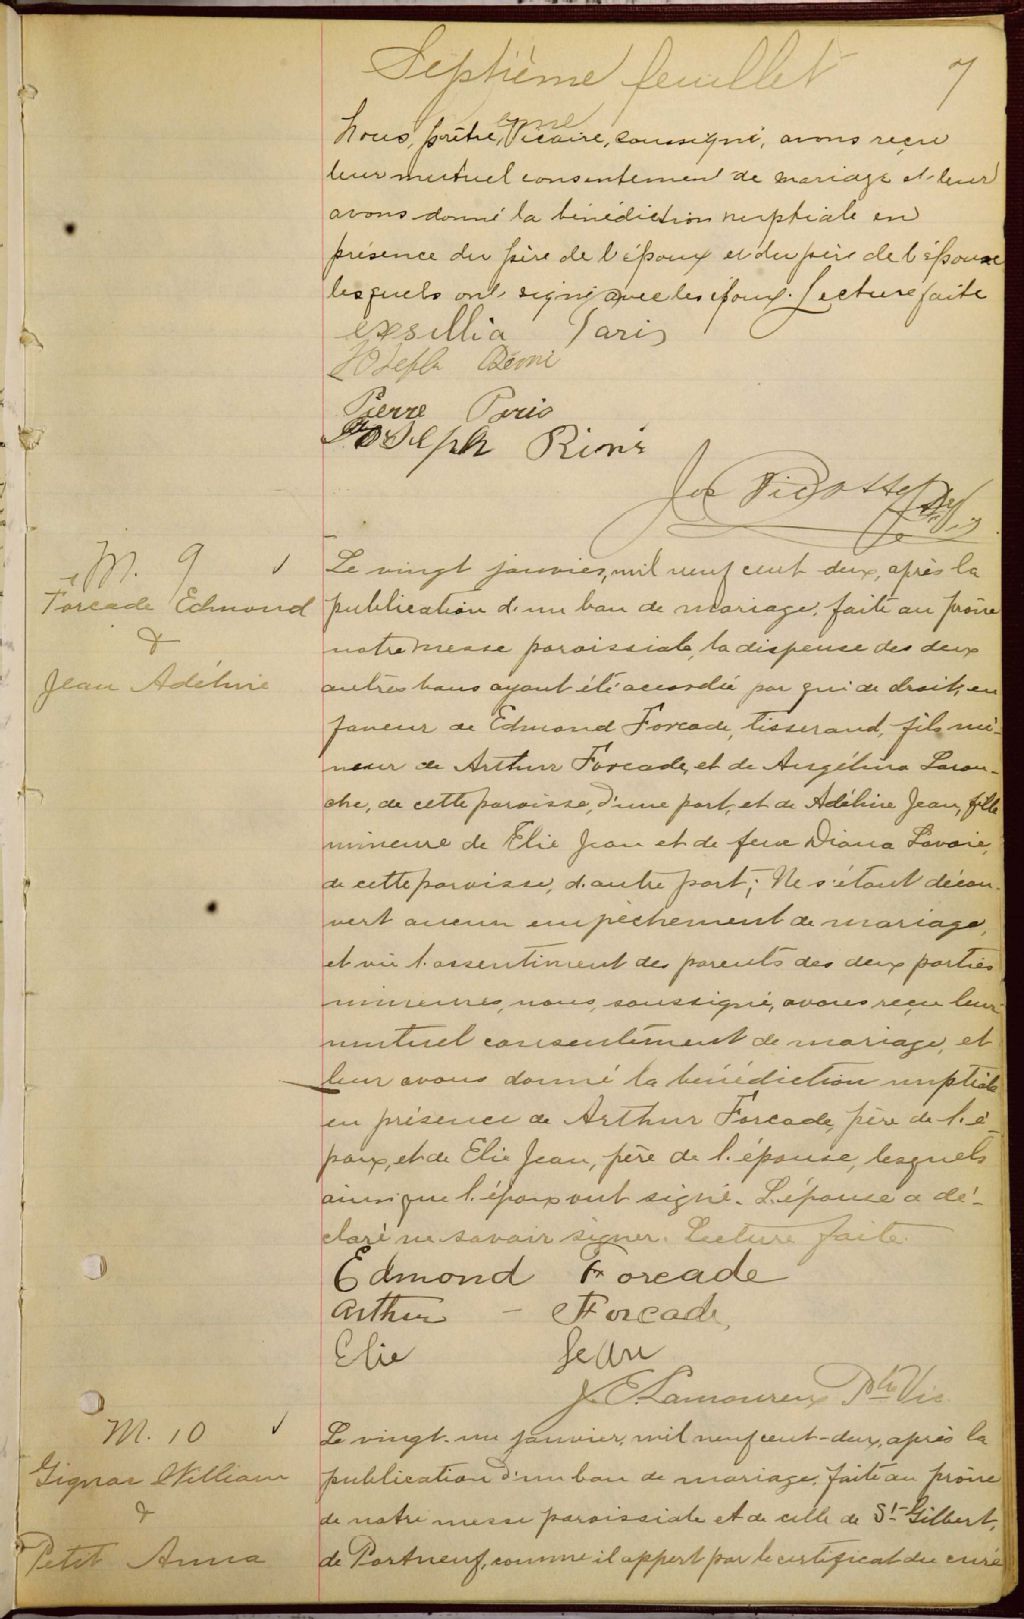 Septième feuillet 7
Nous, prêtre, Vicaire, soussigné, avons reçu
leur mutuel consentement de mariage et leur
avons donné la bénédiction nuptiale en
présence du père de l'époux et du père de l'épouse
lesquels ont signé avec les époux. Lecture faite
Exsillia Paris
Joseph
Pierre Paris
Joseph
Jos
M. 9
Forcade Edmond
&
Jean Adéline
Le vingt janvier, mil neuf cent deux, après la
publication d'un ban de mariage, faite au prône
notre messe paroissiale, la dispense des deux
autres bans ayant été accordée par qui de droit, en
faveur de Edmond Forcade, tisserand, fils mi-
neur de Arthur Forcade, et de Angélina Larou-
che, de cette paroisse, d'une part, et de Adéline Jean, fille
mineure de Elie Jean et de feue Diana Lavoie,
de cette paroisse, d'autre part; Ne s'étant décou-
vert aucun empêchement de mariage,
et vu l'assentiment des parents des deux parties
mineures, nous, soussigné, avons reçu leur
mutuel consentement de mariage, et
leur avons donné la bénédiction nuptiale
en présence de Arthur Forcade, père de l'é-
poux, et de Elie Jean, père de l'épouse, lesquels
ainsi que l'époux ont signé. L'épouse a dé-
claré ne savoir signer. Lecture faite.
Edmond Forcade
Arthur - Forcade,
Elie Jean
J. E. Lamoureux Ptre Vic.
M. 10
Gignac William
&
Petit Anna
Le vingt-un janvier, mil neuf cent-deux, après la
publication d'un ban de mariage, faite au prône
de notre messe paroissiale et de celle de St-Gilbert,
de Portneuf, comme il appert par le certificat du curé